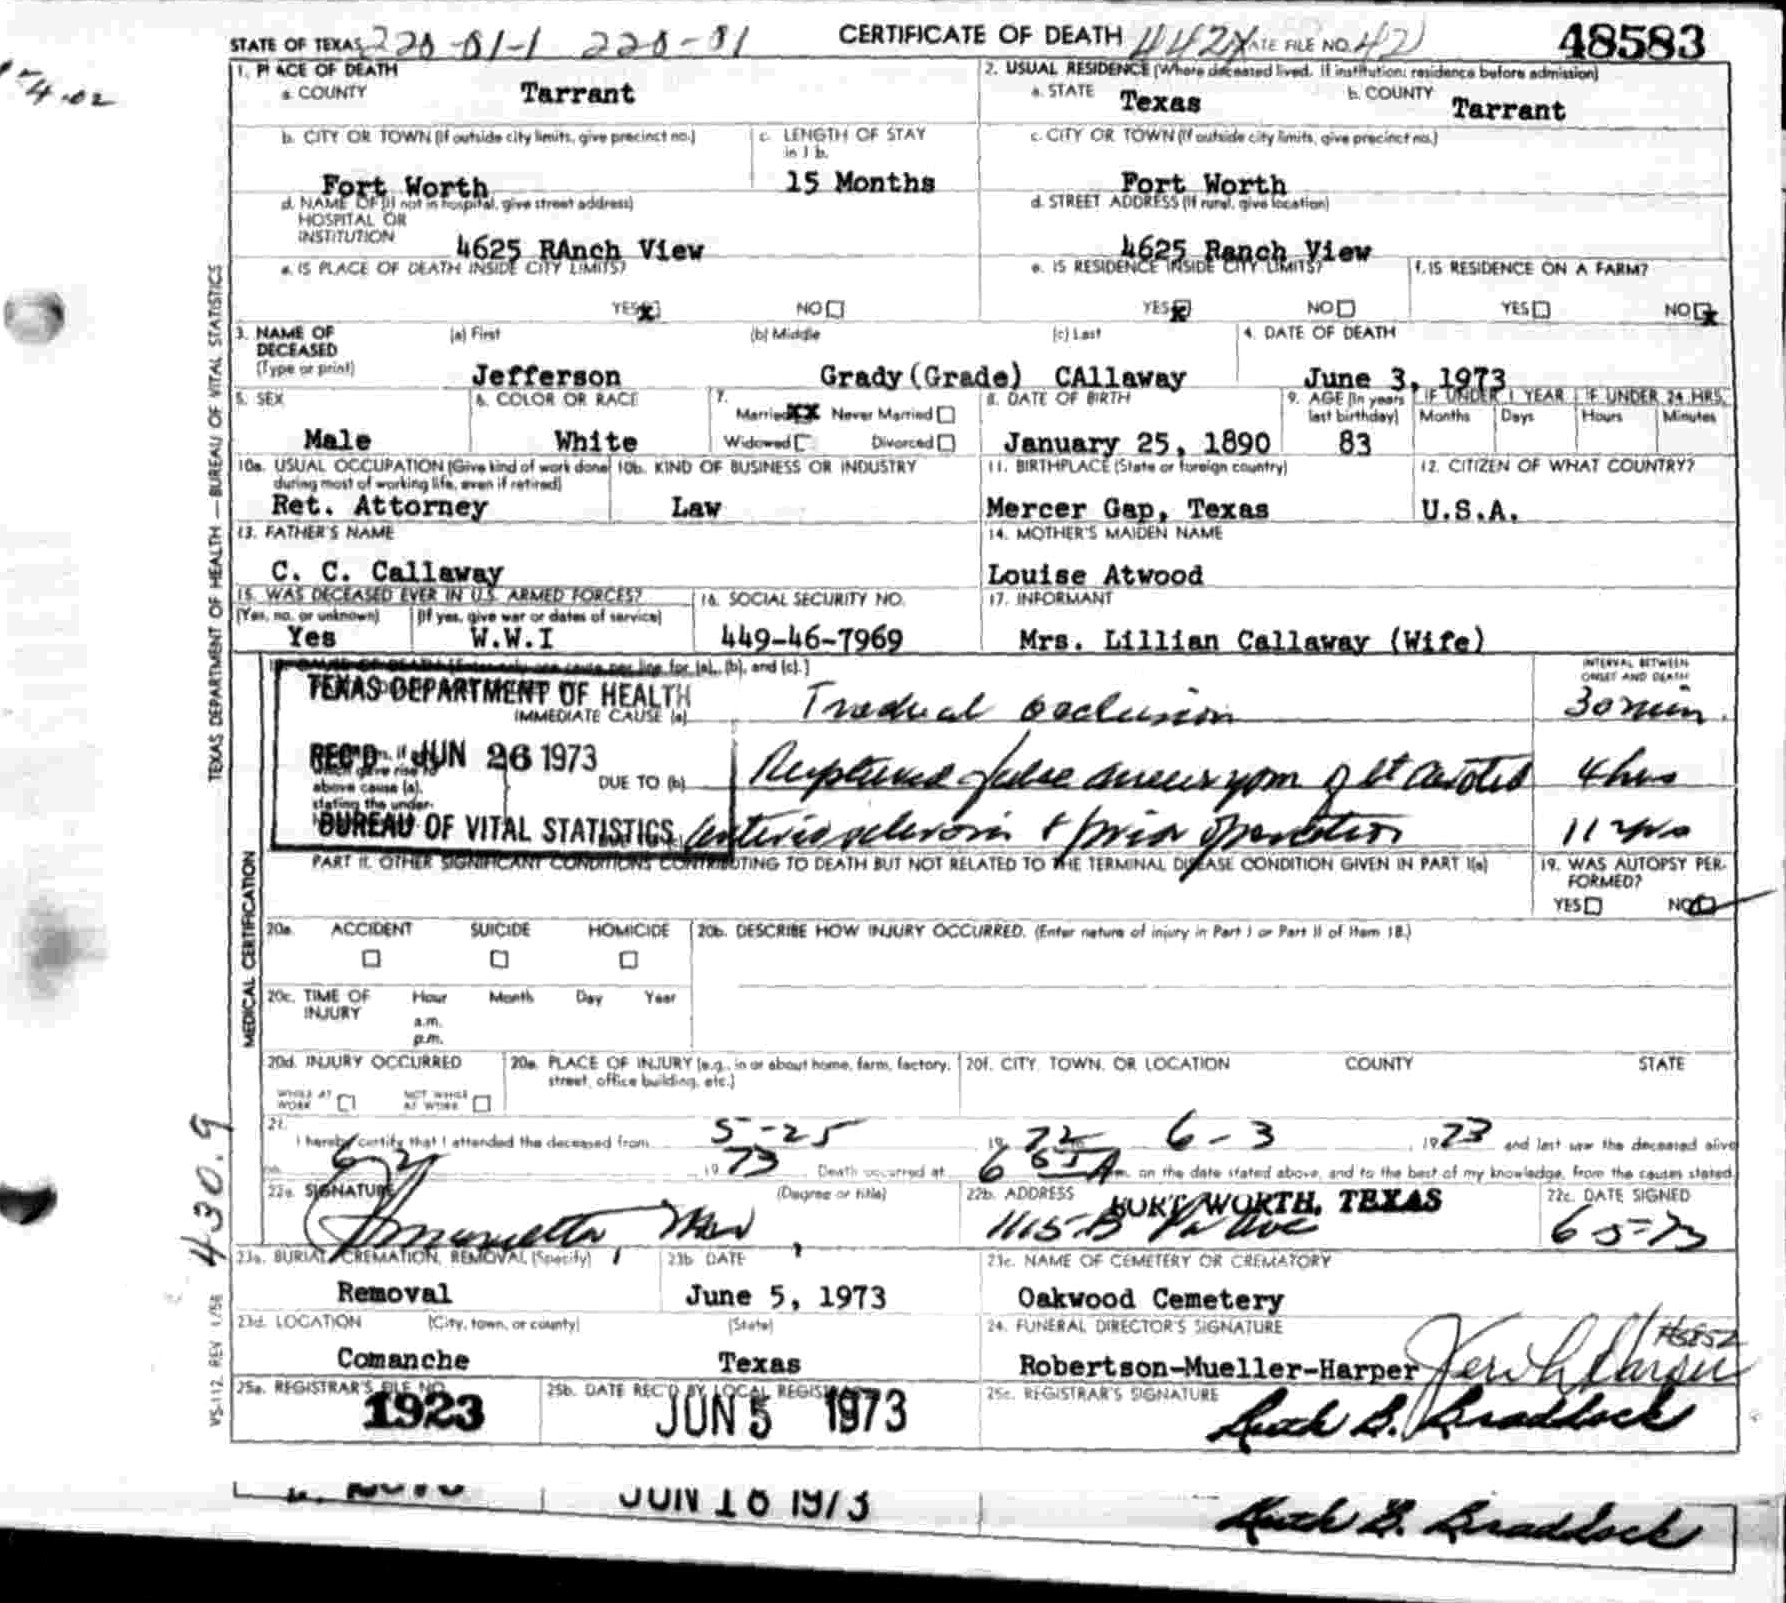 STATE OF TEXAS 220-01-1 220-01 CERTIFICATE OF DEATH 442X STATE FILE NO. 42 48583
1. PLACE OF DEATH
a. COUNTY Tarrant
2. USUAL RESIDENCE (Where deceased lived. If institution: residence before admission)
a. STATE Texas b. COUNTY Tarrant
b. CITY OR TOWN (If outside city limits, give precinct no.) Fort Worth
c. LENGTH OF STAY in 1 b. 15 Months
c. CITY OR TOWN (If outside city limits, give precinct no.) Fort Worth
d. NAME OF (If not in hospital, give street address)
HOSPITAL OR
INSTITUTION 4625 RAnch View
d. STREET ADDRESS (If rural, give location)
4625 Ranch View
e. IS PLACE OF DEATH INSIDE CITY LIMITS?
YES NO
e. IS RESIDENCE INSIDE CITY LIMITS?
YES NO
f. IS RESIDENCE ON A FARM?
YES NO
3. NAME OF DECEASED (Type or print)
(a) First (b) Middle (c) Last
Jefferson Grady (Grade) CAllaway
4. DATE OF DEATH
June 3, 1973
5. SEX Male
6. COLOR OR RACE White
7. Married XX Never Married
Widowed Divorced
8. DATE OF BIRTH January 25, 1890
9. AGE (In years last birthday) 83
IF UNDER 1 YEAR IF UNDER 24 HRS.
Months Days Hours Minutes
10a. USUAL OCCUPATION (Give kind of work done during most of working life, even if retired)
Ret. Attorney
10b. KIND OF BUSINESS OR INDUSTRY Law
11. BIRTHPLACE (State or foreign country) Mercer Gap, Texas
12. CITIZEN OF WHAT COUNTRY? U.S.A.
13. FATHER'S NAME C. C. Callaway
14. MOTHER'S MAIDEN NAME Louise Atwood
15. WAS DECEASED EVER IN U.S. ARMED FORCES?
(Yes, no, or unknown) (If yes, give war or dates of service)
Yes W.W.I
16. SOCIAL SECURITY NO. 449-46-7969
17. INFORMANT Mrs. Lillian Callaway (Wife)
18. CAUSE OF DEATH [Enter only one cause per line for (a), (b), and (c).]
INTERVAL BETWEEN ONSET AND DEATH
TEXAS DEPARTMENT OF HEALTH
IMMEDIATE CAUSE (a) occlusion 30 min.
REC'D JUN 26 1973
which gave rise to
above cause (a),
stating the under-
DUE TO (b) Ruptured false aneurysm of lt carotid 4 hrs
BUREAU OF VITAL STATISTICS
arteriosclerosis & prior operation 11 yrs
PART II. OTHER SIGNIFICANT CONDITIONS CONTRIBUTING TO DEATH BUT NOT RELATED TO THE TERMINAL DISEASE CONDITION GIVEN IN PART I(a)
19. WAS AUTOPSY PERFORMED?
YES NO
20a. ACCIDENT SUICIDE HOMICIDE
20b. DESCRIBE HOW INJURY OCCURRED. (Enter nature of injury in Part I or Part II of Item 18.)
20c. TIME OF INJURY Hour Month Day Year
a.m.
p.m.
20d. INJURY OCCURRED
WHILE AT WORK NOT WHILE AT WORK
20e. PLACE OF INJURY (e.g., in or about home, farm, factory, street, office building, etc.)
20f. CITY, TOWN, OR LOCATION COUNTY STATE
21. I hereby certify that I attended the deceased from 5-25 1972 6-3 1973 and last saw the deceased alive
on 6-2 1973 Death occurred at 6 m. on the date stated above, and to the best of my knowledge, from the causes stated.
22a. SIGNATURE (Degree or title)
22b. ADDRESS FORT WORTH, TEXAS
1115-B Pa Ave
22c. DATE SIGNED 6-5-73
23a. BURIAL, CREMATION, REMOVAL (Specify) Removal
23b. DATE June 5, 1973
23c. NAME OF CEMETERY OR CREMATORY Oakwood Cemetery
23d. LOCATION (City, town, or county) (State)
Comanche Texas
24. FUNERAL DIRECTOR'S SIGNATURE
Robertson-Mueller-Harper
25a. REGISTRAR'S FILE NO. 1923
25b. DATE REC'D BY LOCAL REGISTRAR JUN 5 1973
25c. REGISTRAR'S SIGNATURE
Ruth B. Braddock
JUN 18 1973
Ruth B. Braddock
TEXAS DEPARTMENT OF HEALTH — BUREAU OF VITAL STATISTICS
MEDICAL CERTIFICATION
430.9
VS-112 REV 1/58